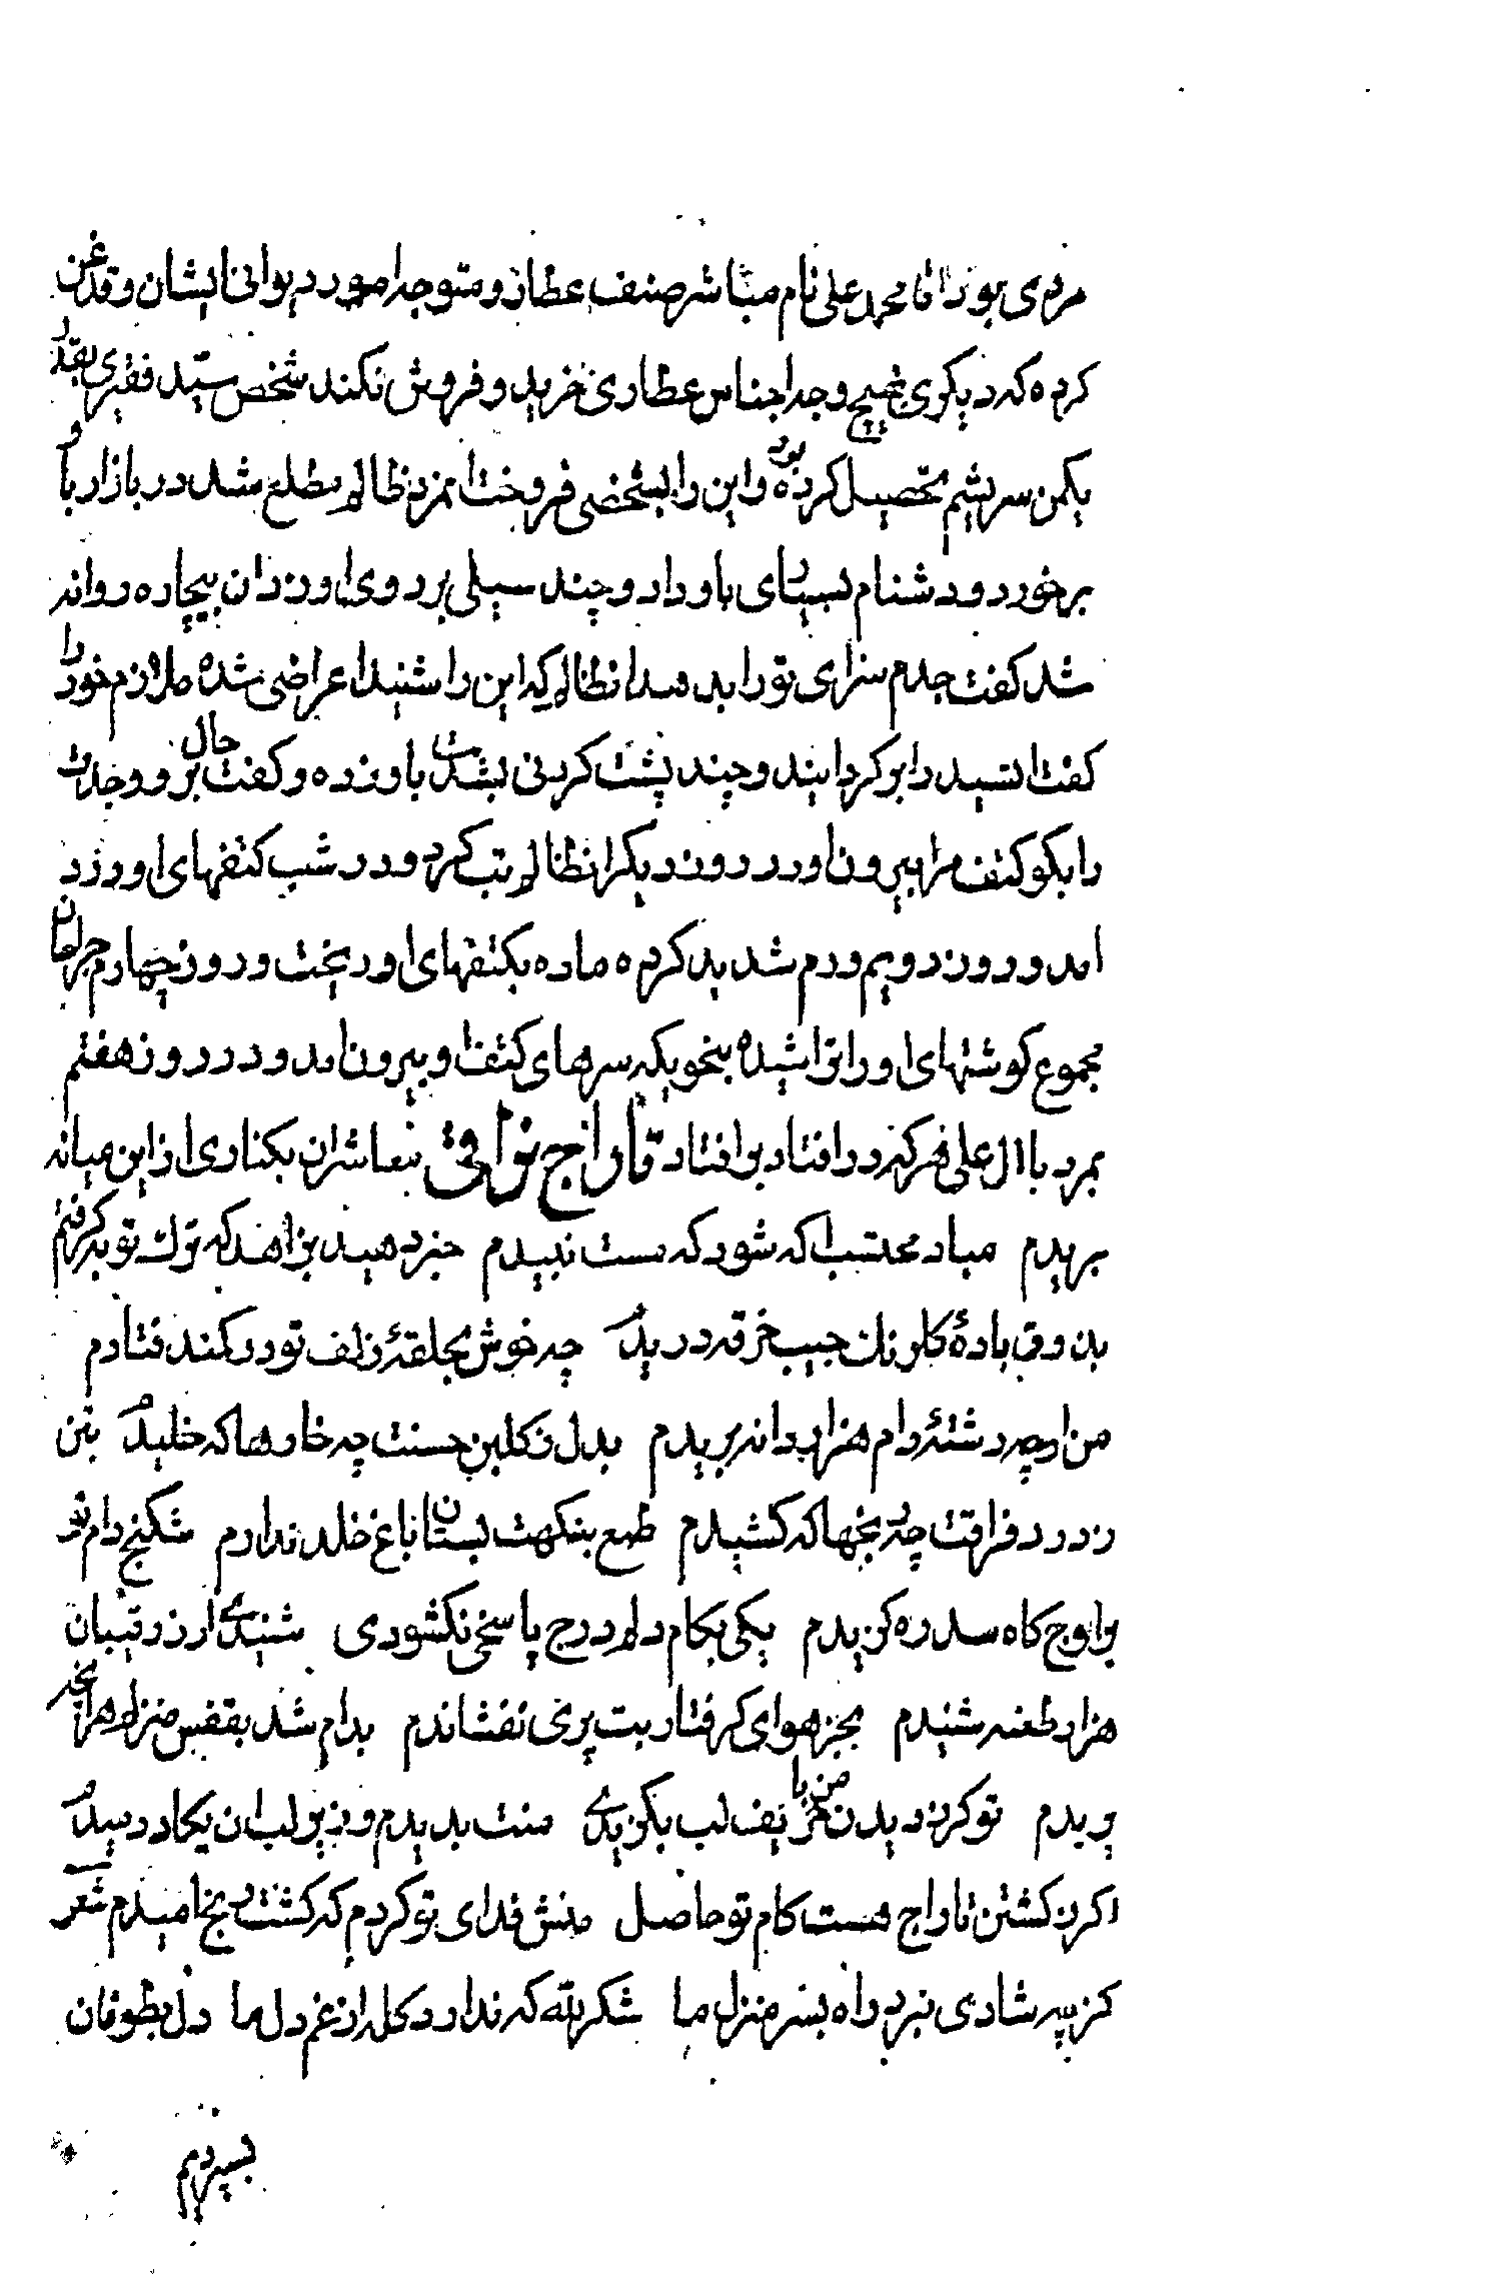 مردی بود اقا محمد علی نام مباشر صنف عطار و متوجه امور دیوانی ایشان و قدغن
کرده که دیکری بهیچ وجه اجناس عطاری خرید و فروش نکند شخص سید فقیری بقدر
یکمن سریشم تحصیل کرده بود و این را بشخصی فروخت انمرد ظالم مطلع شد در بازار باو
برخورد و دشنام بسیاری باو داد و چند سیلی بر روی او زد ان بیچاره روانه
شد کفت جدم سزای تو را بدهد انظالم که این را شنید اعراضی شده ملازم خود را
کفت انسید را برکردانیند و چند پشت کردنی بشدت باو زده و کفت حال برو و جدت
را بکو کتف مرا بیرون اورد روز دیکر انظالم تب کرد و در شب کتفهای او درد
امد و روز دویم ورم شدید کرده ماده بکتفهای او ریخت و روز چهارم جراحان
مجموع کوشتهای او را تراشیده بنحویکه سرهای کتف او بیرون امد و در روز هفتم
بمرد با ال علی هر که در افتاد بر افتاد تاراج نراقی معاشران بکناری از این میانه
بریدم مباد محتسب اکه شود که مست نبیدم خبر دهید بزاهد که ترک توبه کرفتم
بذوق بادهٔ کلرنک جیب خرقه دریدم چه خوش بحلقهٔ زلف تو در کمند فتادم
من ارچه رشتهٔ دام هزار دانه بریدم بدل ز کلبن حسنت چه خارها که خلیدم بتن
ز درد فراقت چه رنجها که کشیدم طمع بنکهت بستان باغ خلد ندارم شکنج دام تو
بر اوج کاه سدره کزیدم یکی بکام دلم درج پاسخی نکشودی شنیدی ار ز رقیبان
هزار طعنه شنیدم بجز هوای کرفتاریت پری نفشاندم بدام شد بقفس منزلم هر انچه
پریدم تو کر ز دیدن من با حریف لب بکزیدی منت بدیدم و زیر لب ان یکاد دمیدم
اکر ز کشتن تاراج هست کام تو حاصل منش فدای تو کردم که کشت نخل امیدم شعر
کز سپه شادی نبرد راه بسر منزل ما شکر لله که ندارد کله از غم دل ما دل بطوفان
بسپردیم